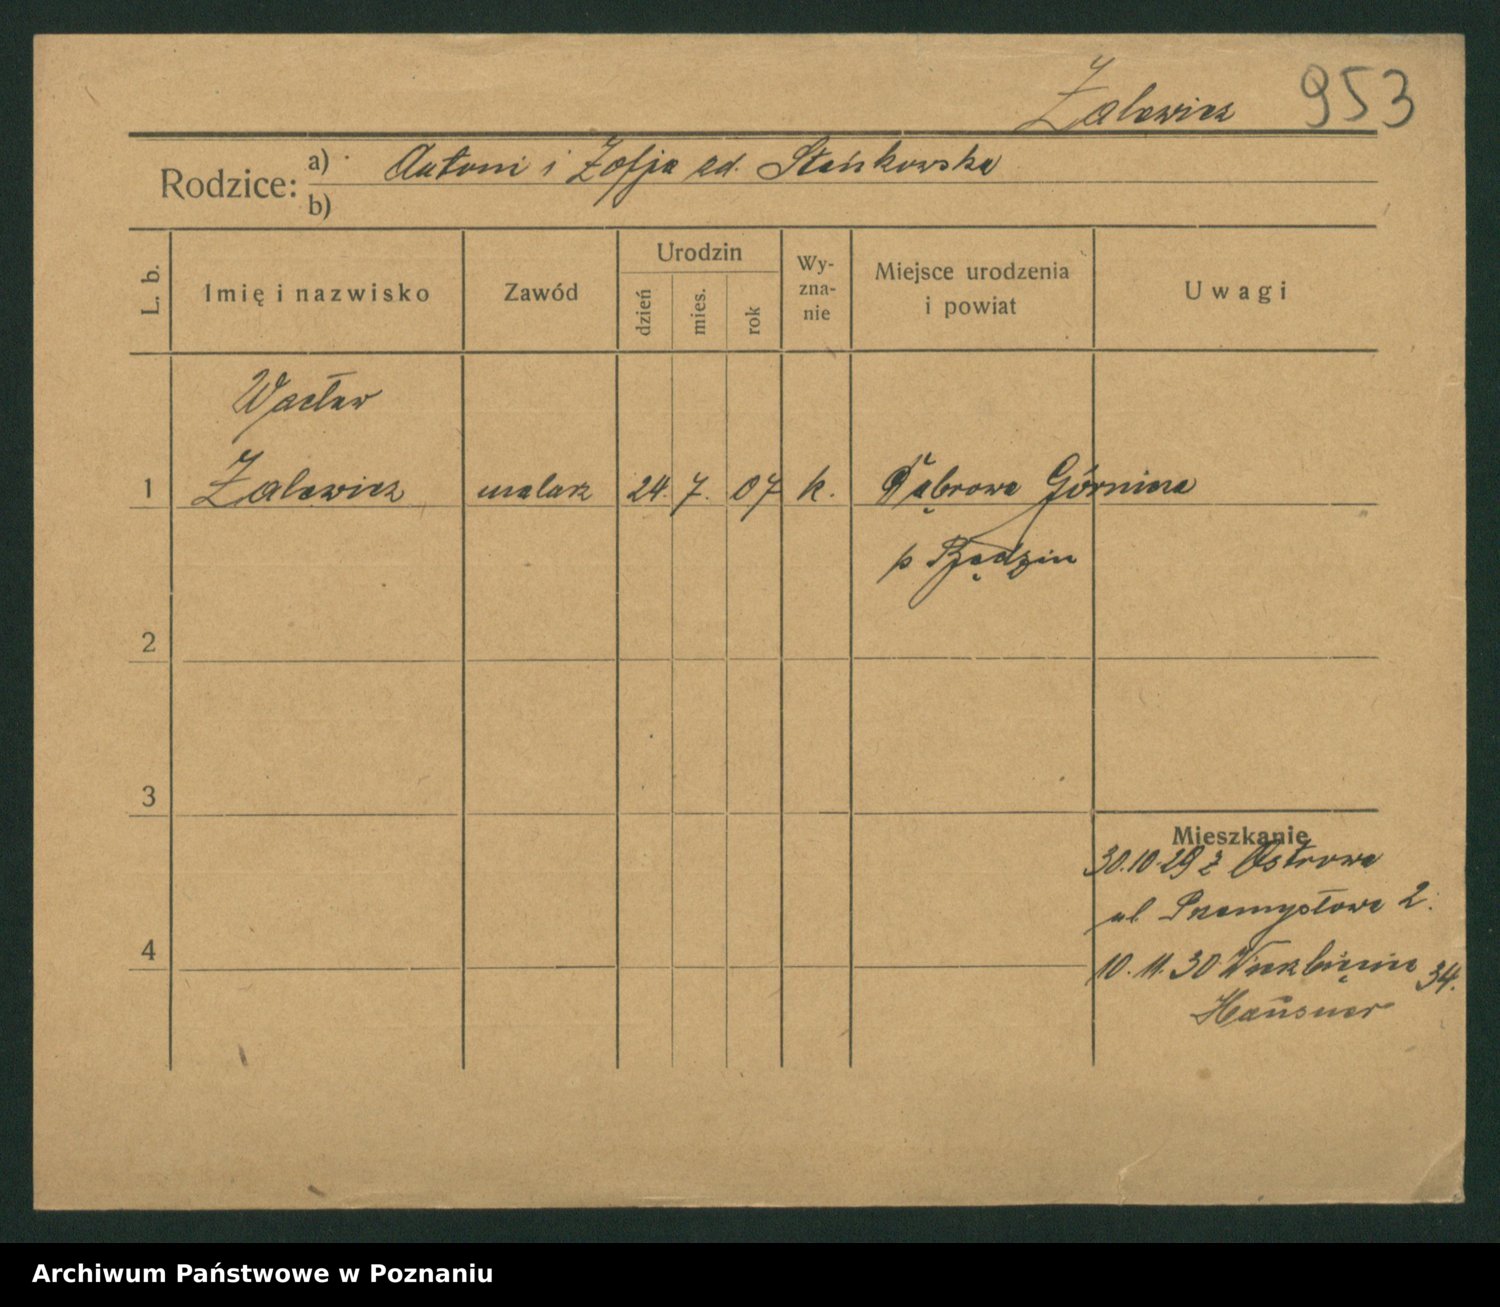 Zalewicz 953
Rodzice: a) Antoni i Zofja zd. Stańkowska
b)
L. b. Imię i nazwisko Zawód Urodzin dzień mies. rok Wy-zna-nie Miejsce urodzenia i powiat Uwagi
Wacław
1 Zalewicz malarz 24. 7. 07 k. Dąbrowa Górnicza
p Będzin
2
3
Mieszkanie
30.10.29 z Ostrowa
ul Przemysłowa 2.
4
10. 11. 30 Wierzbięcice 34.
Hausner
Archiwum Państwowe w Poznaniu